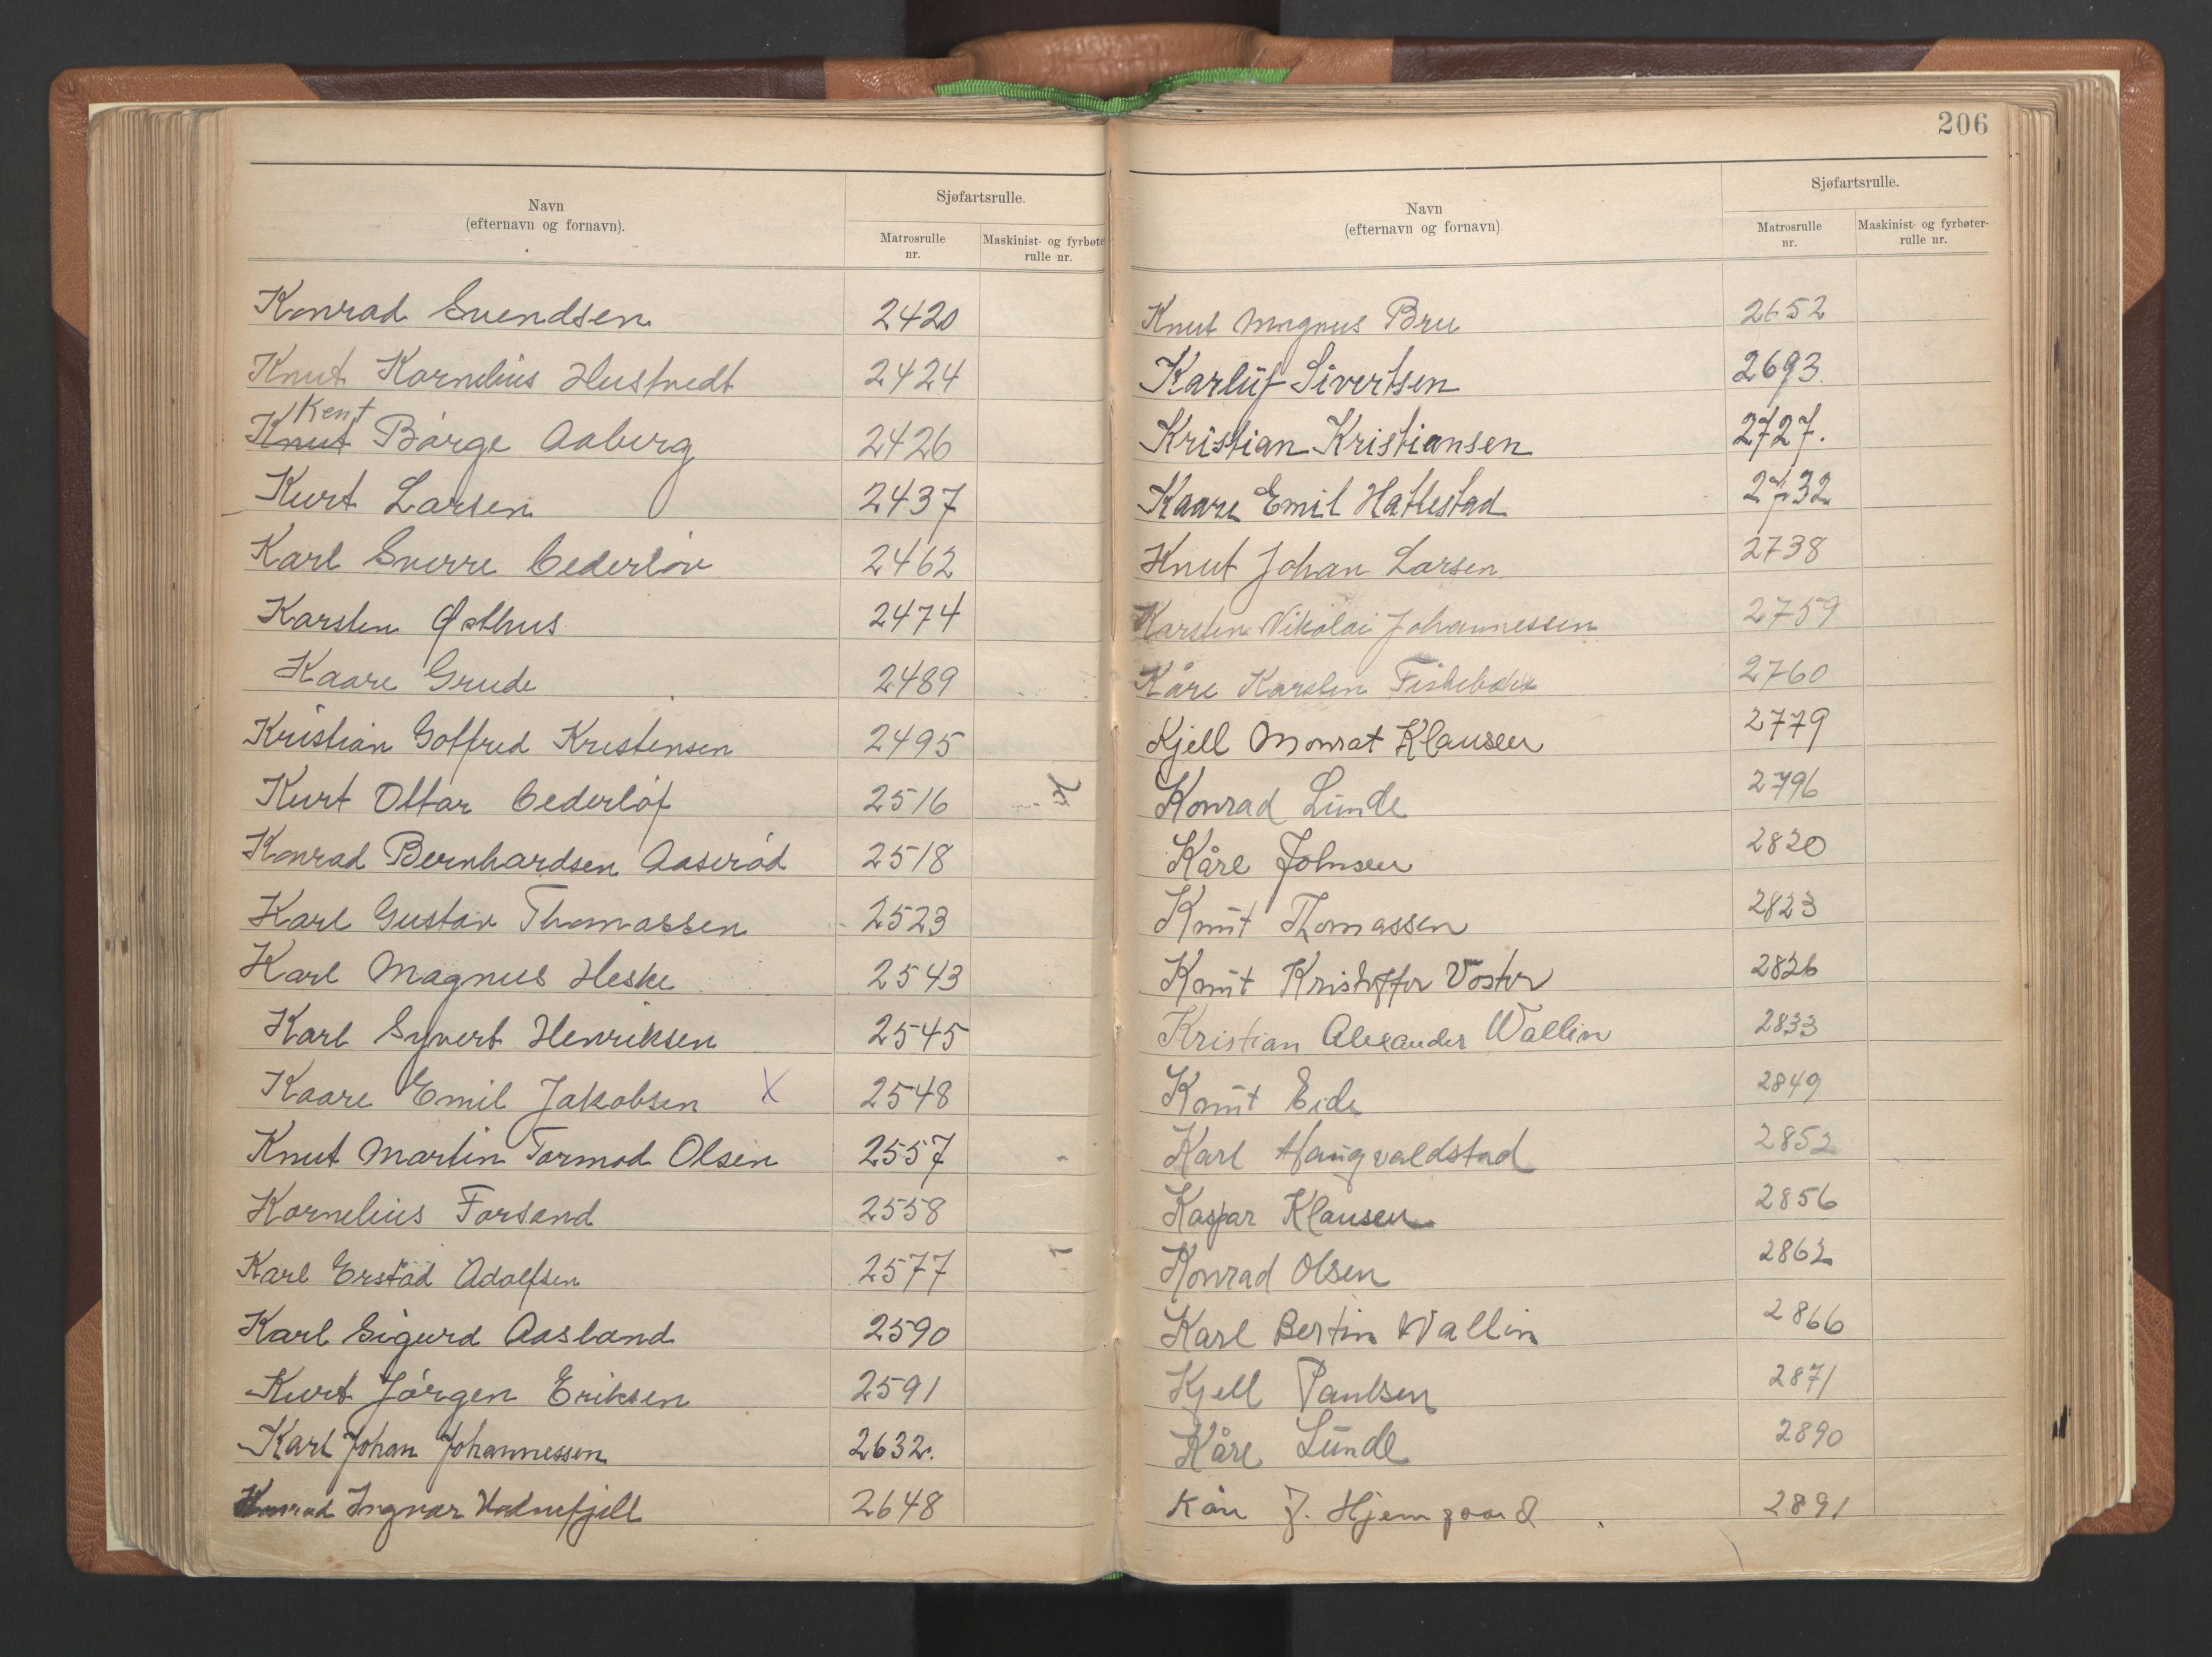 Navn
(efternavn og fornavn).
Sjøfartsrulle.
Matrosrulle nr.
Maskinist- og fyrbøte rulle nr.
Konrad Svendsen 2420
Knut Kornelius Hustvedt 2424
Kent
Knut Børge Aaberg 2426
Kurt Larsen 2437
Karl Sverre Cederløv 2462
Karsten Østhus 2474
Kaare Grude 2489
Kristian Gotfred Kristensen 2495
Kurt Ottar Cederløf 2516
Konrad Bernhardsen Aaserød 2518
Karl Gustav Thomassen 2523
Karl Magnus Heske 2543
Karl Syvert Henriksen 2545
Kaare Emil Jakobsen X 2548
Knut Martin Tormod Olsen 2557
Kornelius Forsand 2558
Karl Erstad Adolfsen 2577
Karl Sigurd Aasland 2590
Kurt Jørgen Eriksen 2591
Karl Johan Johannessen 2632.
Konrad Ingvar Hodnefjell 2648
206
Navn
(efternavn og fornavn)
Sjøfartsrulle.
Matrosrulle nr.
Maskinist- og fyrbøter- rulle nr.
Knut Magnus Bru 2652
Karluf Sivertsen 2693.
Kristian Kristiansen 2727.
Kaare Emil Hatlestad 2732
Knut Johan Larsen 2738
Karsten Nikolai Johannessen 2759
Kåre Karsten 2760
Kjell Monrat Klausen 2779
Konrad Lunde 2796
Kåre Johnsen 2820
Knut Thomassen 2823
Knut Kristoffer Voster 2826
Kristian Alexander Wallin 2833
Knut Eide 2849
Karl Haugvaldstad 2852
Kaspar Klausen 2856
Konrad Olsen 2862
Karl Bertin Wallin 2866
Kjell Paulsen 2871
Kåre Lunde 2890
Kåre J. Hjemgaard 2891